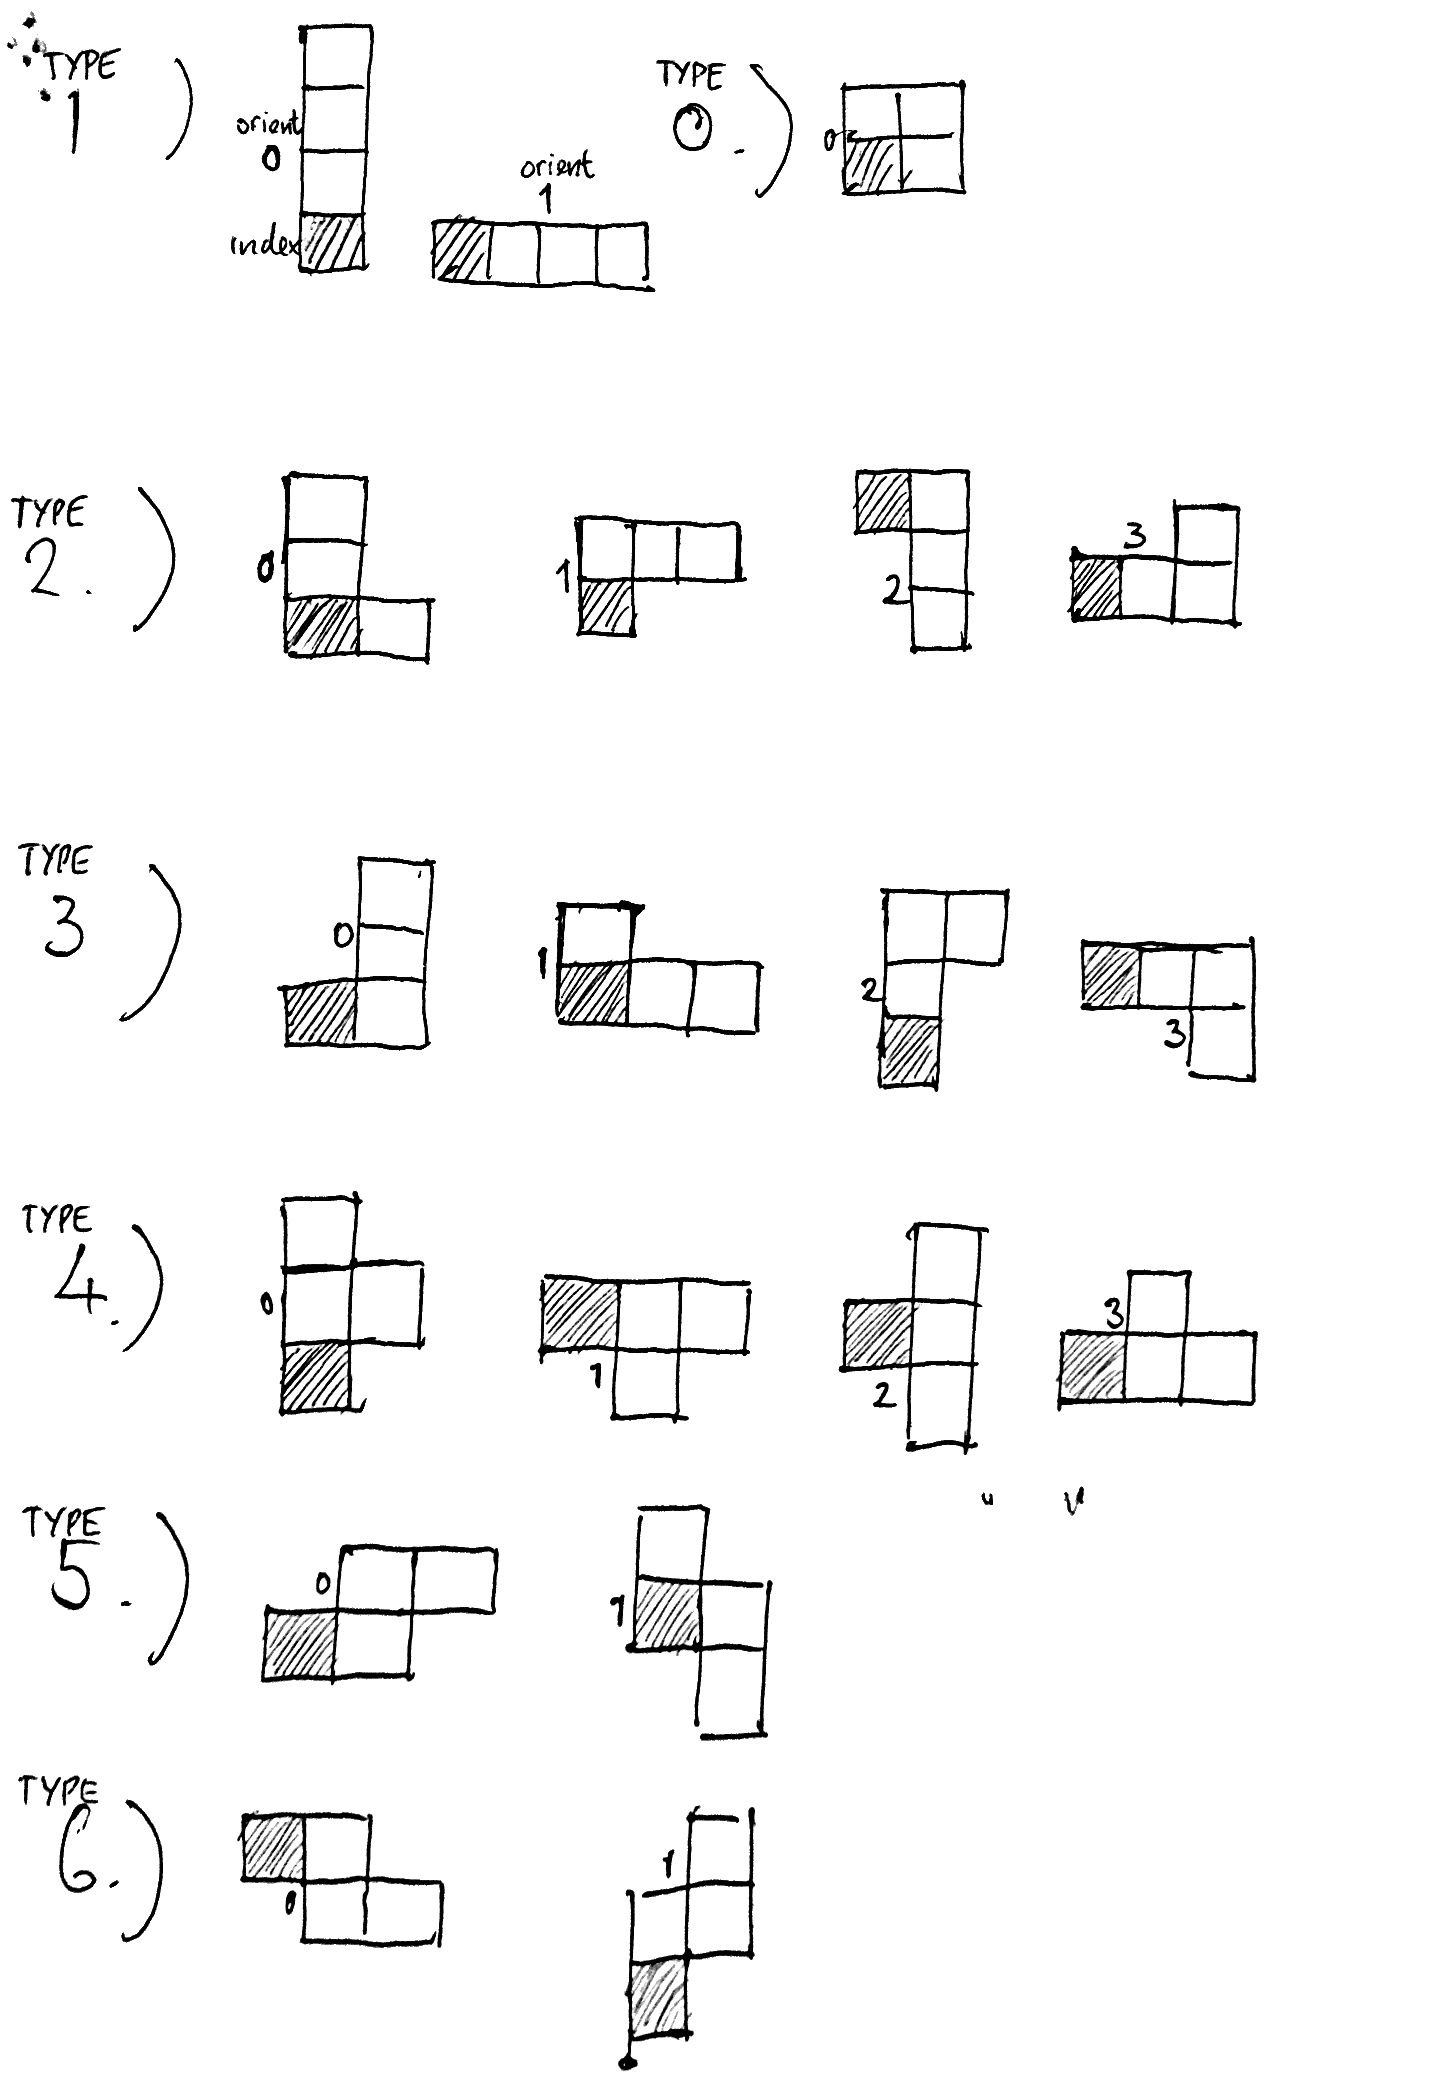 TYPE
1 )
orient
0
index
orient
1
TYPE
0. )
0
TYPE
2. )
0
1
2
3
TYPE
3 )
0
1
2
3
TYPE
4. )
0
1
2
3
TYPE
5. )
0
1
TYPE
6. )
0
1